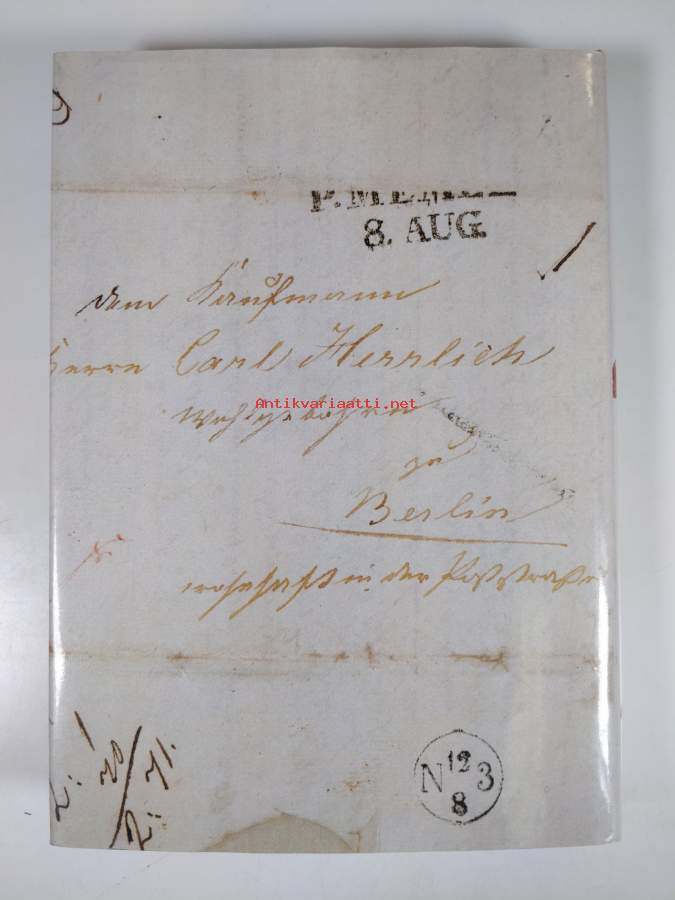 8. AUG.
dem Kaufmann
Herrn Carl Herrlich
Antikvariaatti.net
Wohlgebohren
zu
Berlin
wohnhaft in der Poststraße
N 12 3
8